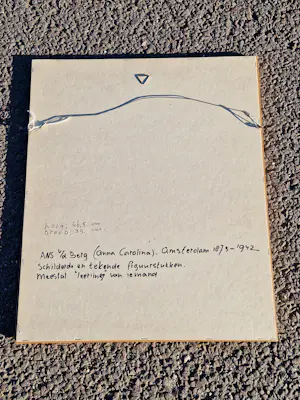 hoog: 46,5 cm
breed: 39, cm
ANS v/d Berg (Anna Carolina). Amsterdam 1873-1942
Schilderde en tekende figuurstukken.
Meestal leerlinge van iemand